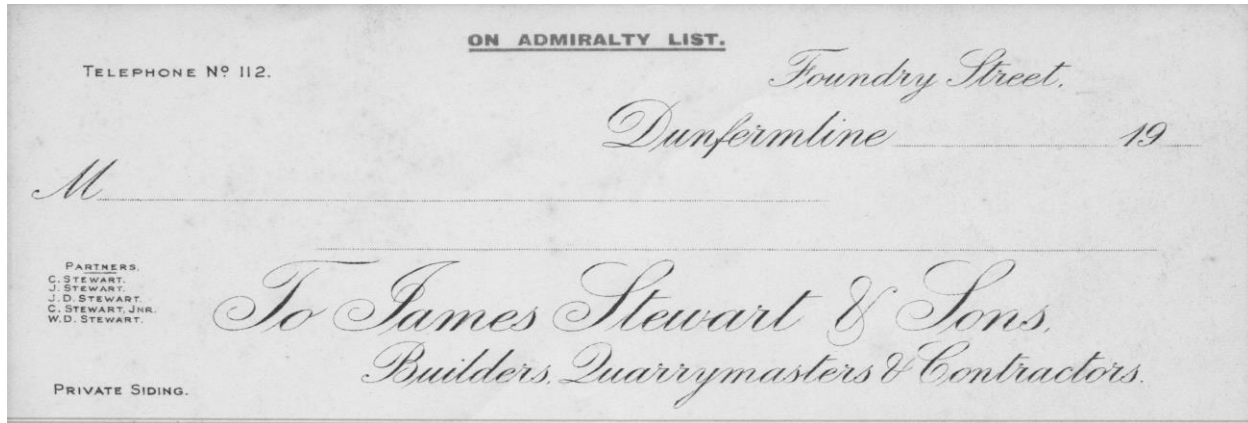 ON ADMIRALTY LIST.
TELEPHONE Nº 112.
Foundry Street.
Dunfermline 19
M
PARTNERS.
C. STEWART.
J. STEWART.
J. D. STEWART.
C. STEWART, JNR.
W. D. STEWART.
To James Stewart & Sons,
Builders, Quarrymasters & Contractors.
PRIVATE SIDING.